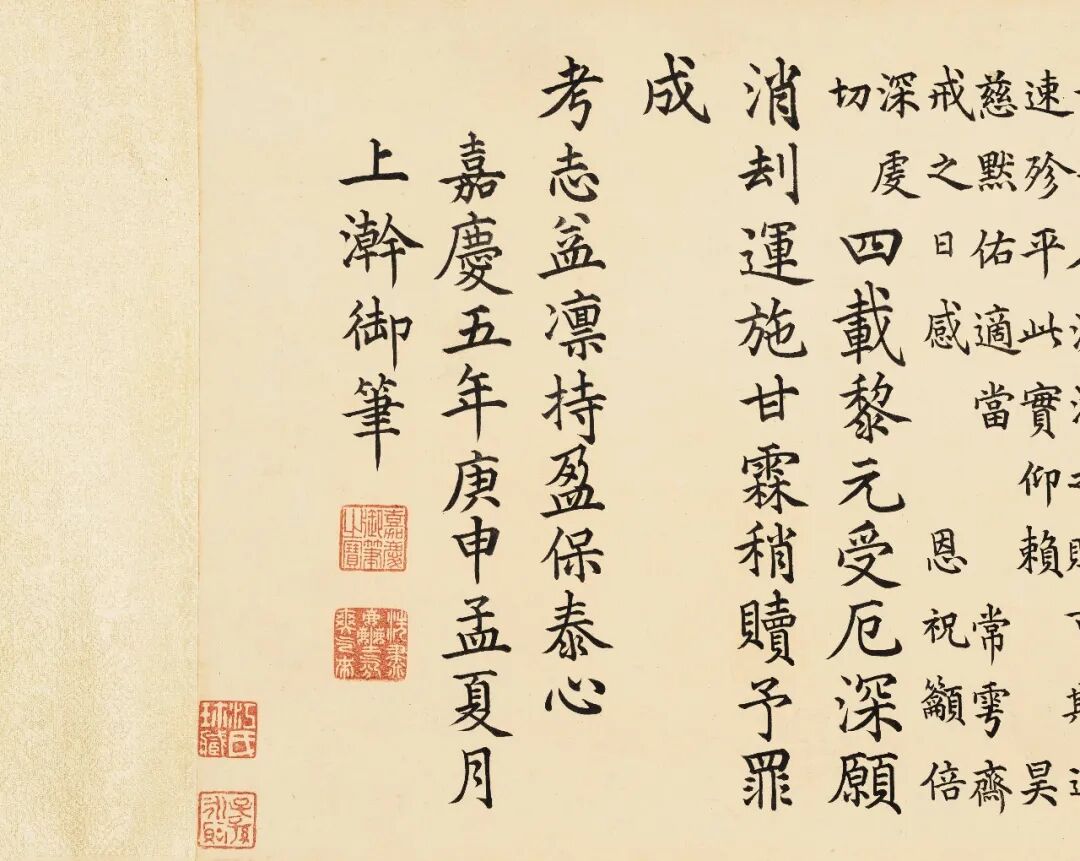 速殄平此實仰賴昊
慈默佑適當常雩齋
戒之日感恩祝籲倍
深虔
切
四載黎元受厄深願
消刦運施甘霖稍贖予罪
成
考志益凛持盈保泰心
嘉慶五年庚申孟夏月
上澣御筆
嘉慶御筆之寶